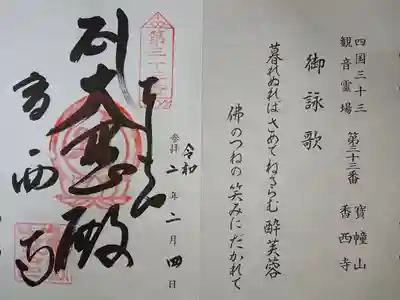 四国三十三
観音霊場
第三十三番
寶幢山
香西寺
御詠歌
暮れぬれば さめてねるらむ 酔芙蓉
佛のつねの笑みにだかれて
参拝 令和二年二月四日
第三十三番
大悲殿
香西寺